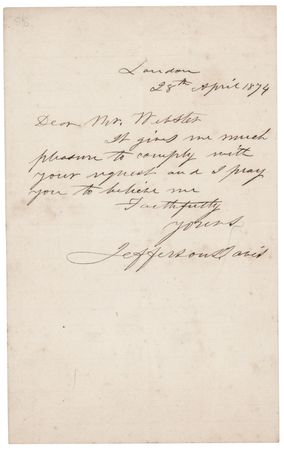 London
28th April 1874
Dear Mr. Webster
It gives me much
pleasure to comply with
your request and I pray
you to believe me
Faithfully
yours
Jefferson Davis